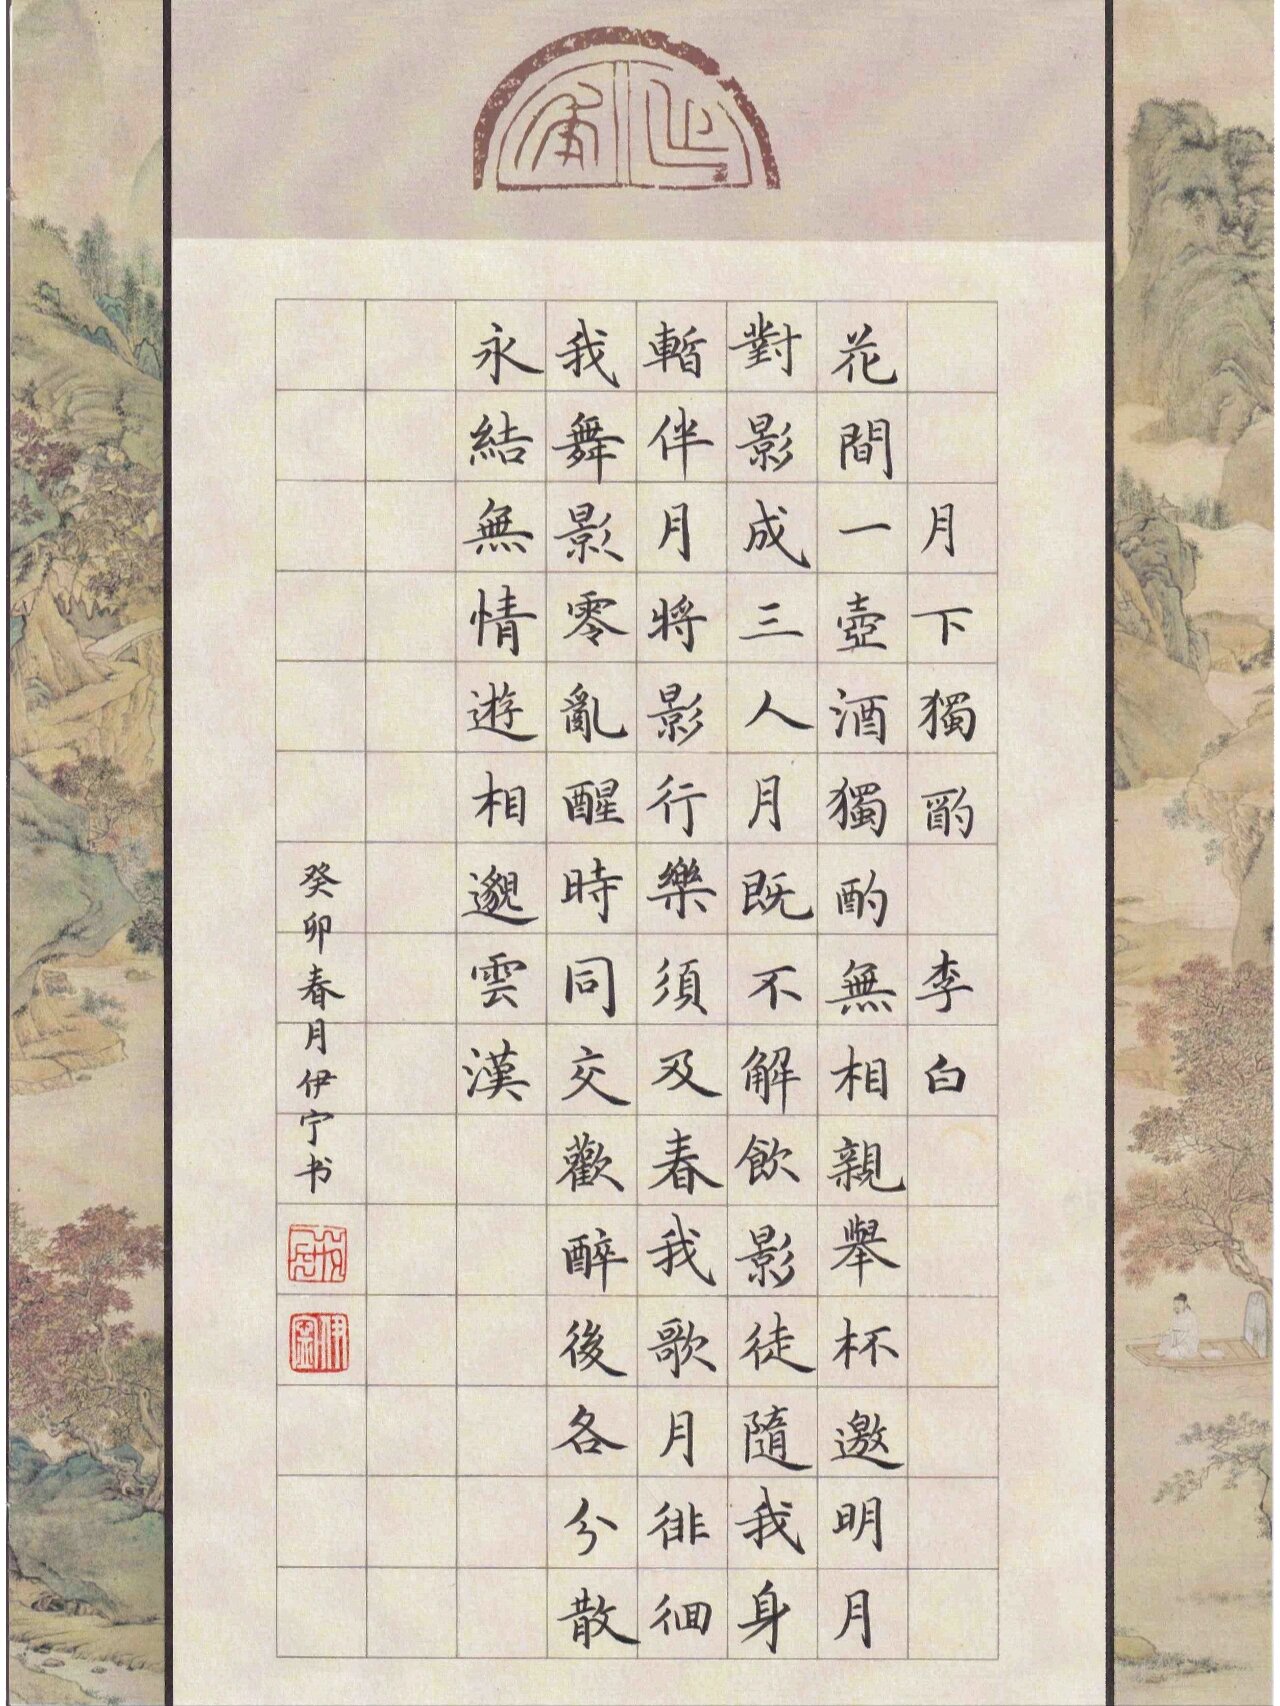 月下獨酌 李白
花間一壺酒獨酌無相親舉杯邀明月
對影成三人月既不解飲影徒隨我身
暫伴月將影行樂須及春我歌月徘徊
我舞影零亂醒時同交歡醉後各分散
永結無情遊相邈雲漢
癸卯春月伊宁书